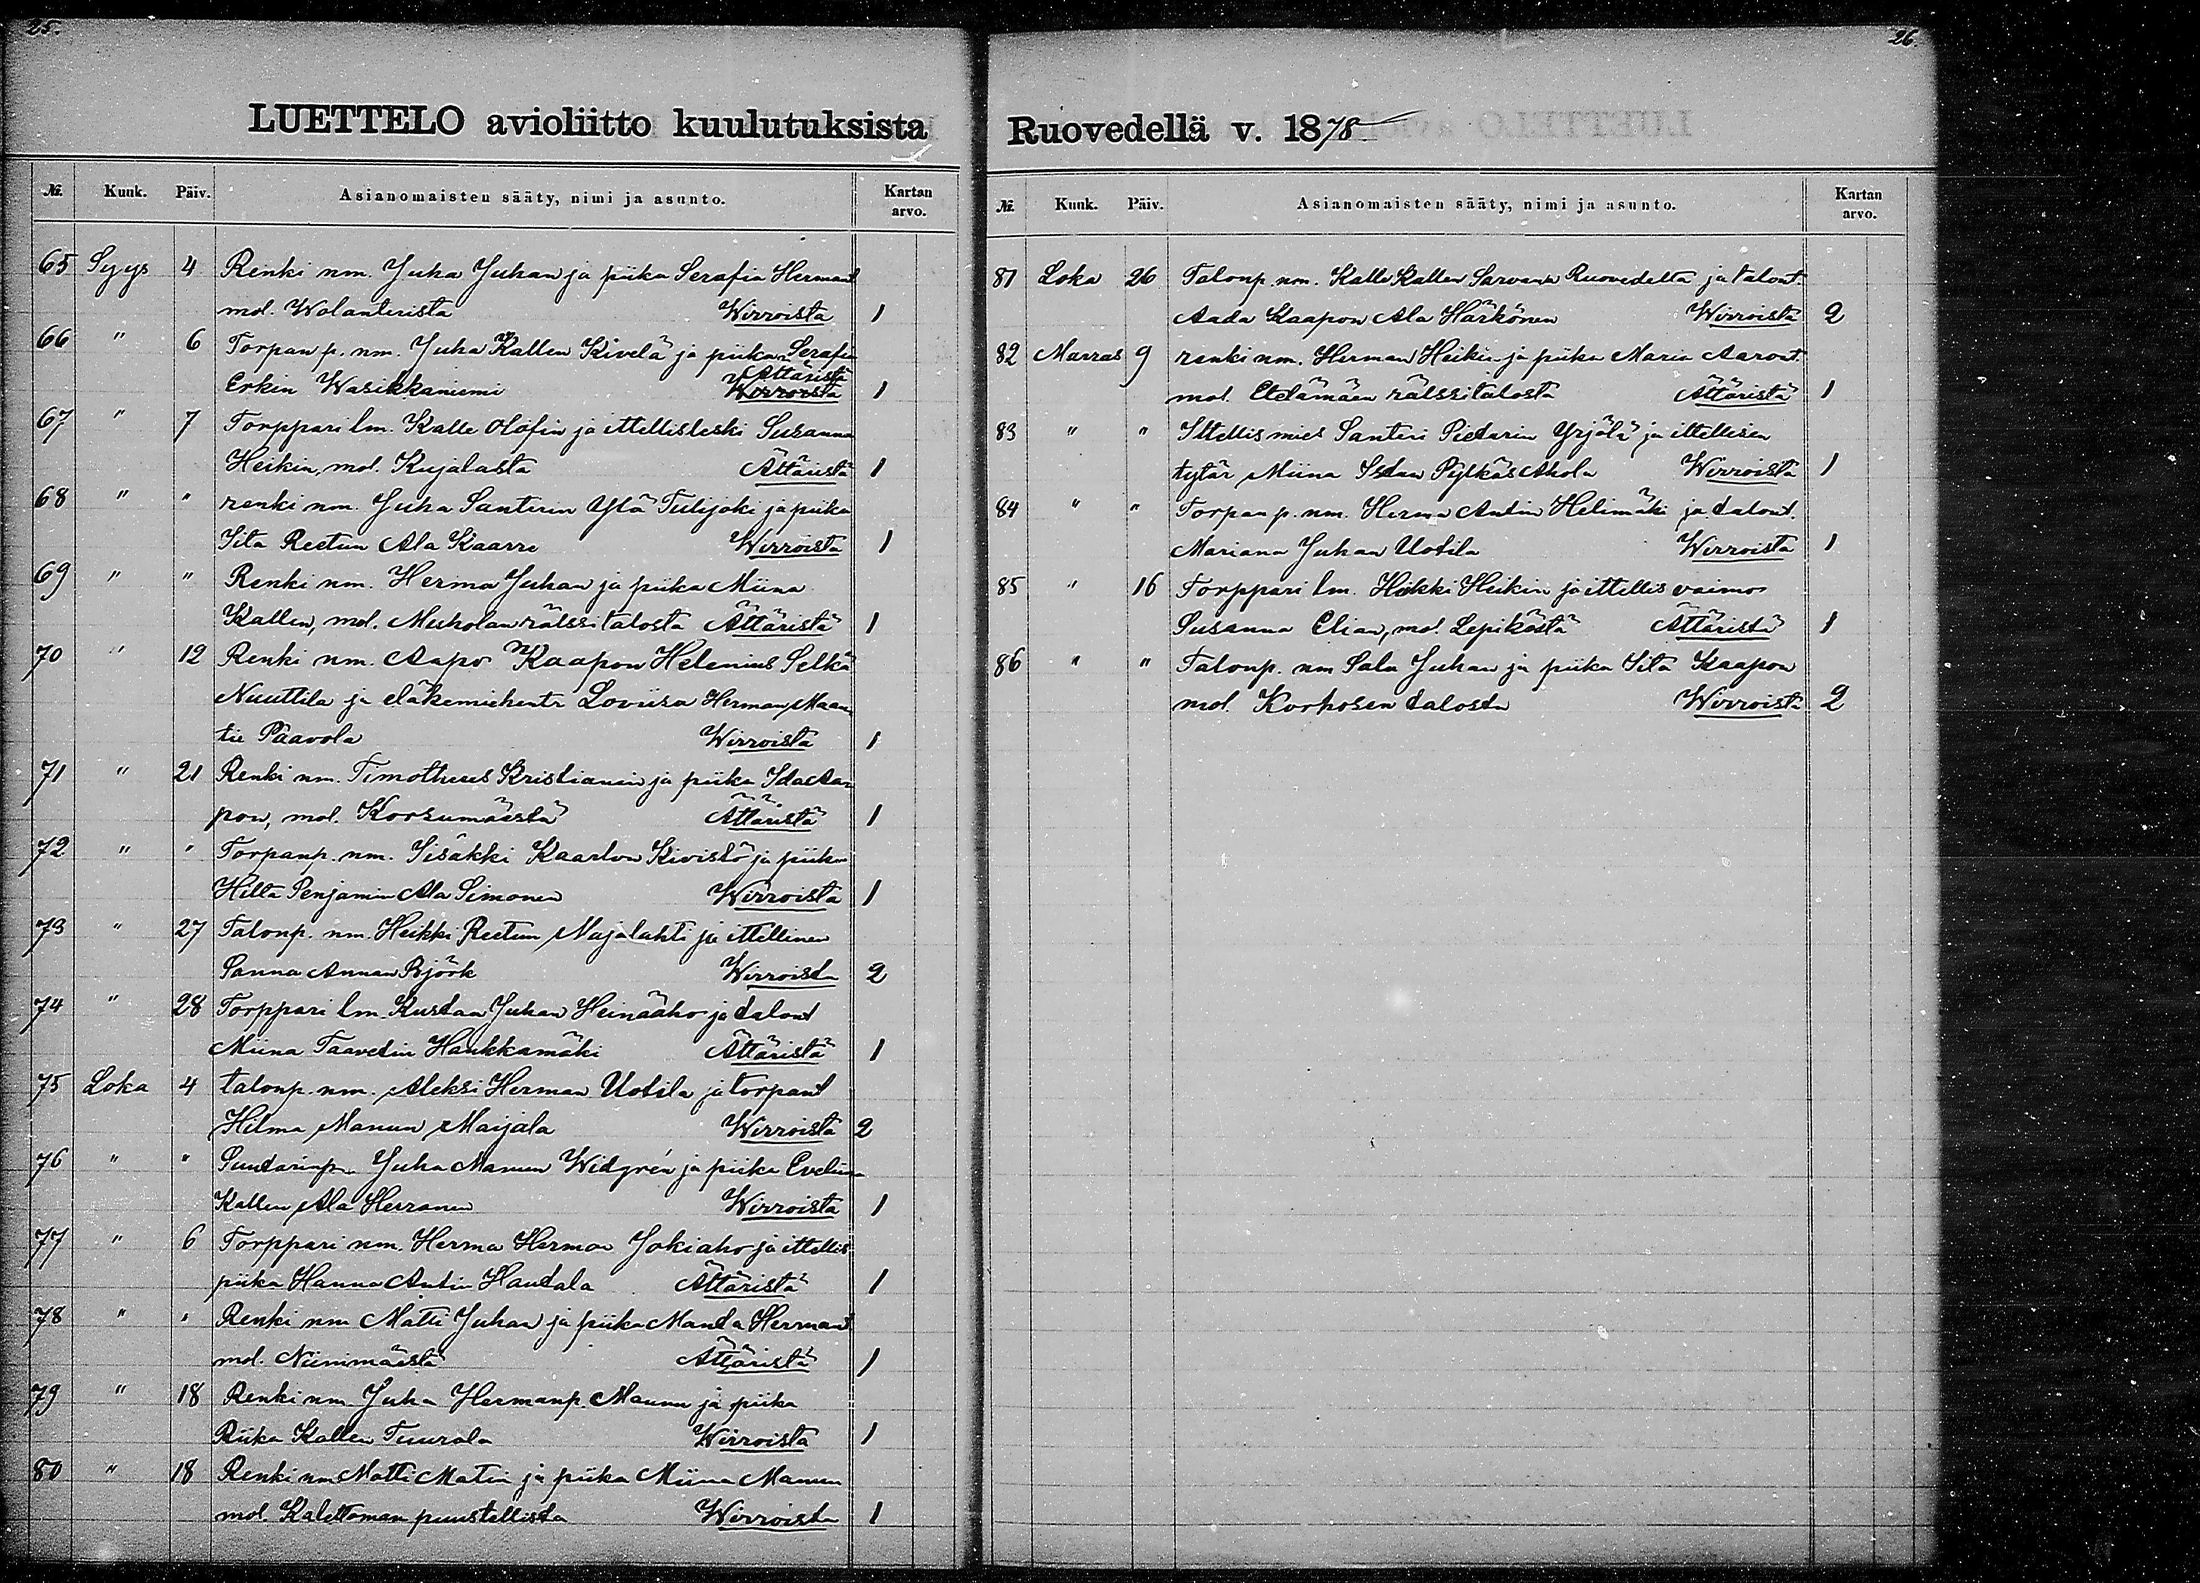 25.
LUETTELO avioliitto kuulutuksista
№. Kuuk. Päiv. Asianomaisten sääty, nimi ja asunto. Kartan arvo.
65 Syys 4 Renki nm. Juha Juhan ja piika Serafia Hermant
mol. Wolanterista Wirroista 1
66 " 6 Torpan p. nm. Juha Kallen Kivelä ja piika Serafia
Ättäristä
Erkin Wasikkaniemi Wirroista 1
67 " 7 Torppari lm. Kalle Olofin ja ittellisleski Susanna
Heikin, mol. Kujalasta Ättäristä 1
68 " " renki nm. Juha Santerin Ylä Tulijoki ja piika
Iita Reetun Ala Kaarre Wirroista 1
69 " " Renki nm. Herma Juhan ja piika Miina
Kallen, mol. rälssitalosta Ättäristä 1
70 " 12 Renki nm. Aapo Kaapon Helenius Selkä
Nuuttila ja eläkemiehent. Loviisa Herman Maan
tie Paavola Wirroista 1
71 " 21 Renki nm. Timotheus Kristianin ja piika Ida Aa
pon, mol. Korsumäestä Ättäristä 1
72 " " Torpanp. nm. Iisäkki Kaarlon Kivistö ja piika
Hilta Penjamin Ala Simonen Wirroista 1
73 " 27 Talonp. nm. Heikki Reetun Majalahti ja ittellinen
Sanna Annan Björk Wirroista 2
74 " 28 Torppari lm. Kustaa Juhan Heinäaho ja talont
Miina Taavetin Hankkamäki Ättäristä 1
75 Loka 4 talonp. nm. Aleksi Herman Uotila ja torpant
Hilma Manun Maijala Wirroista 2
76 " " Suutarinp. Juha Manun Widgrén ja piika Eveliina
Kallen Ala Herranen Wirroista 1
77 " 6 Torppari nm. Herma Herman Jokiaho ja ittellis
piika Hanna Antin Hautala Ättäristä 1
78 " " Renki nm Matti Juhan ja piika Manda Hermant
mol. Niinimäestä Ättäristä 1
79 " 18 Renki nm Juha Hermanp. Mannu ja piika
Riika Kallen Tuurala Wirroista 1
80 " 18 Renki nm Matti Matin ja piika Miina Manun
mol. Kalettoman puustellista Wirroista 1
26.
Ruovedellä v. 1878
№. Kuuk. Päiv. Asianomaisten sääty, nimi ja asunto. Kartan arvo.
81 Loka 26 Talonp. nm. Kalle Kallen Ruovedeltä ja talont.
Aada Kaapon Ala Härkönen Wirroista 2
82 Marras 9 renki nm. Herman Heikin ja piika Maria Aaront
mol. Etelämäen rälssitalosta Ättäristä 1
83 " " Ittellismies Santeri Pietarin Yrjölä ja ittellisen
tytär Miina Pylkäs Ahola Wirroista 1
84 " " Torpan p. nm. Herma Antin Helimäki ja talont.
Mariana Juhan Uotila Wirroista 1
85 " 16 Torppari lm. Heikki Heikin ja ittellis vaimo
Susanna Elian, mol. Lepiköstä Ättäristä 1
86 " " Talonp. nm Salu Juhan ja piika Iita Kaapon
mol. Korhosen talosta Wirroista 2